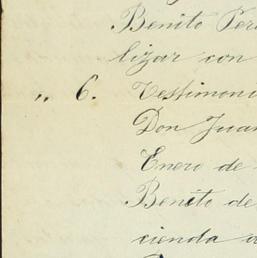 Benito Per
lizar con
„ 6. Testimoni
Don Juan
Enero de
Benito de
cienda d